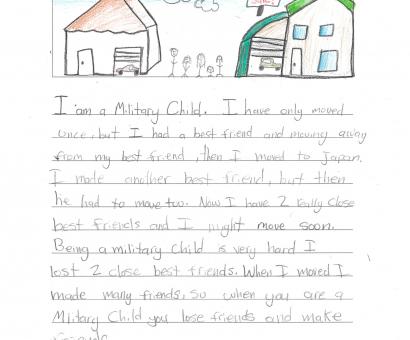 I am a Military Child. I have only moved
once, but I had a best friend and moving away
from my best friend, then I moved to Japan.
I made another best friend, but then
he had to move too. Now I have 2 really close
best friends and I might move soon.
Being a military child is very hard I
lost 2 close best friends. When I moved I
made many friends, so when you are a
Military Child you lose friends and make